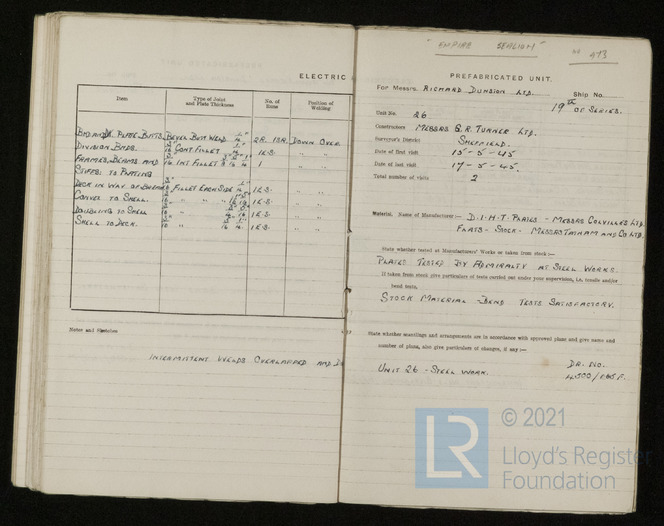 ELECTRIC
Item
Type of Joint and Plate Thickness
No. of Runs
Position of Welding
BHD AND PLATE BUTTS. BEVEL BUTT WELD 2R. 1SR. DOWN OVER
DIVISION BHDS. CONT FILLET 1.E.S. " "
FRAMES, BEAMS AND INT. FILLET 1 " "
STIFFS. TO PLATING
DECK IN WAY OF FILLET EACH SIDE 1.E.S. " "
TO SHELL. " " " 1.E.S. " "
DOUBLING TO SHELL " 1.E.S. " "
SHELL TO DECK. " 1.E.S. " "
Notes and Sketches
INTERMITTENT WELDS OVERLAPPED AND
"EMPIRE SEALION"
No 413
PREFABRICATED UNIT.
For Messrs. RICHARD DUNSTON LTD. Ship No.
19th OF SERIES.
Unit No. 26
Constructors MESSRS G.R. TURNER LTD.
Surveyor's District SHEFFIELD.
Date of first visit 15-5-45
Date of last visit 17-5-45.
Total number of visits 2
Material. Name of Manufacturer:- D.I.H.T. PLATES - MESSRS COLVILLES LTD.
FLATS - STOCK - MESSRS TATHAM AND CO LTD.
State whether tested at Manufacturers' Works or taken from stock:-
PLATES TESTED BY ADMIRALTY AT STEEL WORKS.
If taken from stock give particulars of tests carried out under your supervision, i.e. tensile and/or
bend tests,
STOCK MATERIAL - BEND TESTS SATISFACTORY.
State whether scantlings and arrangements are in accordance with approval plans and give name and
number of plans, also give particulars of changes, if any:-
DR. NO.
UNIT 26 - STEEL WORK.
© 2021
LR
Lloyd's Register
Foundation